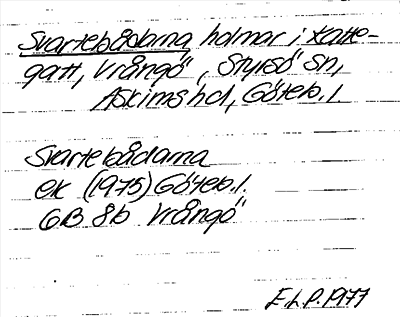 Svartebådarna, holmar i Katte-
gatt, Vrångö, Styrsö sn,
Askims hd, Göteb. l.
Svartebådarna
ek (1975) Göteb. l.
GB 8b Vrångö
E.L.P. 1977